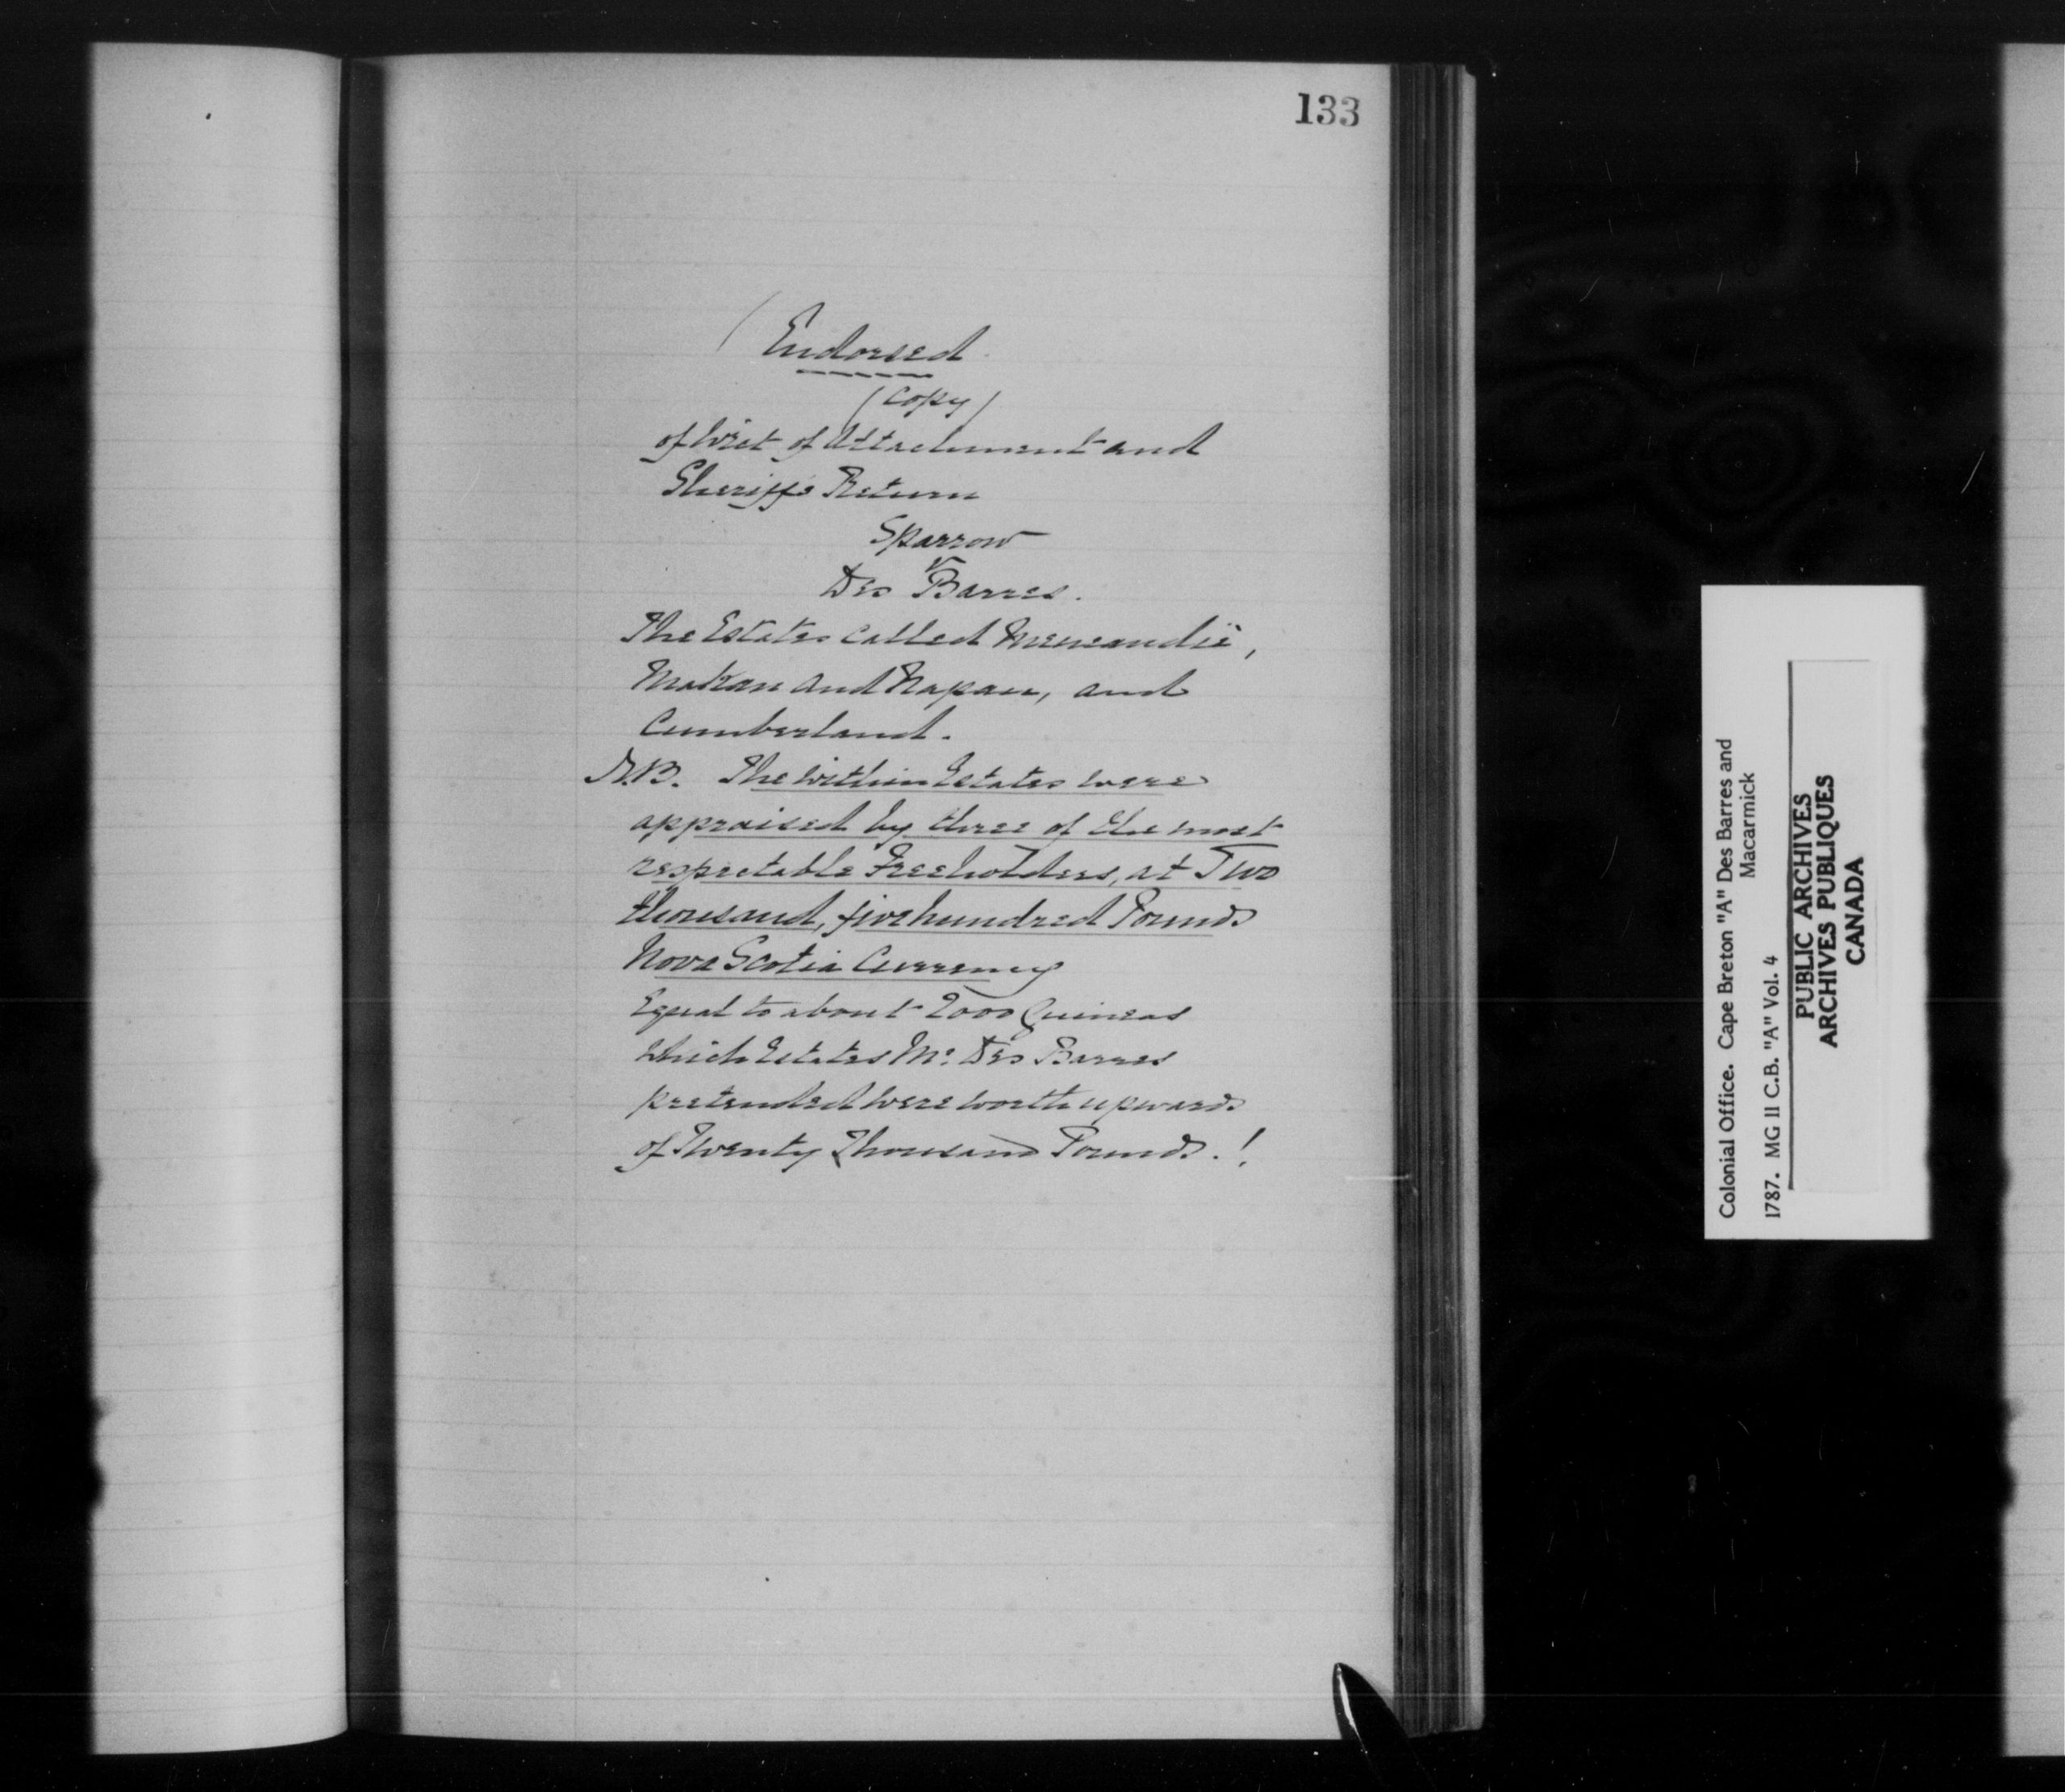 133
(Endorsed
(Copy)
of Writ of Attachment and
Sheriff's Return
Sparrow
v
Des Barres.
The Estates called Menandie,
Makan and Napan, and
Cumberland.
N.B. The within Estates were
appraised by three of the most
respectable Freeholders, at Two
thousand, five hundred Pounds
Nova Scotia Currency
Equal to about 2000 Guineas
Which Estates Mr. Des Barres
pretended were worth upwards
of Twenty Thousand Pounds.!
Colonial Office. Cape Breton "A" Des Barres and
Macarmick
1787. MG 11 C.B. "A" Vol. 4
PUBLIC ARCHIVES
ARCHIVES PUBLIQUES
CANADA